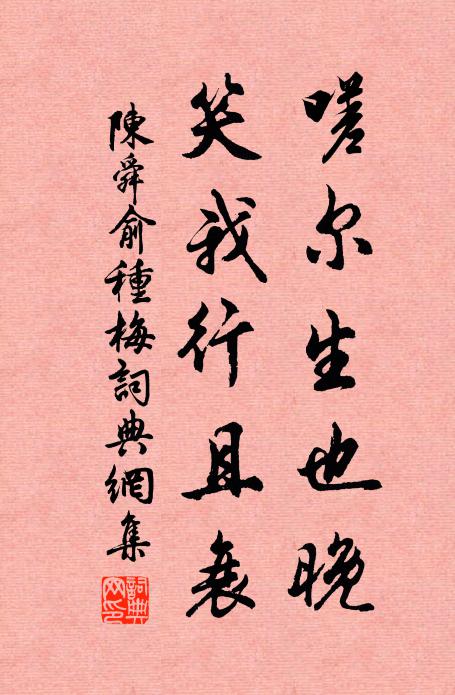 嗟尔生也晚
笑我行且衰
陳舜俞種梅詞典網集
詞典网印